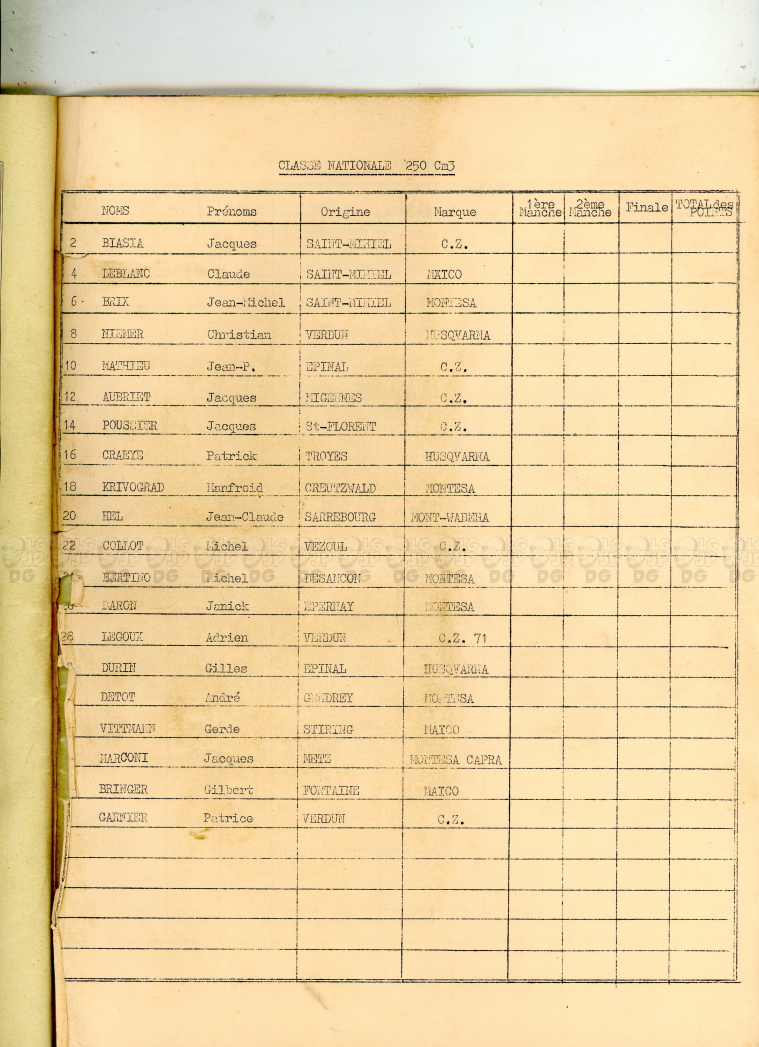 CLASSE NATIONALE 250 Cm3
NOMS Prénoms Origine Marque 1ère Manche 2ème Manche Finale TOTAL des POINTS
2 BIASIA Jacques SAINT-MIHIEL C.Z.
4 LEBLANC Claude SAINT-MIHIEL MAICO
6 BRIX Jean-Michel SAINT-MIHIEL MONTESA
8 NIEMER Christian VERDUN HUSQVARNA
10 MATHIEU Jean-P. EPINAL C.Z.
12 AUBRIET Jacques MIGENNES C.Z.
14 POUSSIER Jacques St-FLORENT C.Z.
16 CRAEYE Patrick TROYES HUSQVARNA
18 KRIVOGRAD Manfreid CREUTZWALD MONTESA
20 HEL Jean-Claude SARREBOURG MONT-WABEHA
22 COLLOT Michel VEZOUL C.Z.
BERTINO Michel BESANCON MONTESA
Janick EPERNAY MONTESA
28 LEGOUX Adrien VERDUN C.Z. 71
DURIN Gilles EPINAL HUSQVARNA
DETOT André MONTESA
VITTMANN Gerde STIRING MAICO
MARCONI Jacques METZ MONTESA CAPRA
BRINGER Gilbert FONTAINE MAICO
GARNIER Patrice VERDUN C.Z.